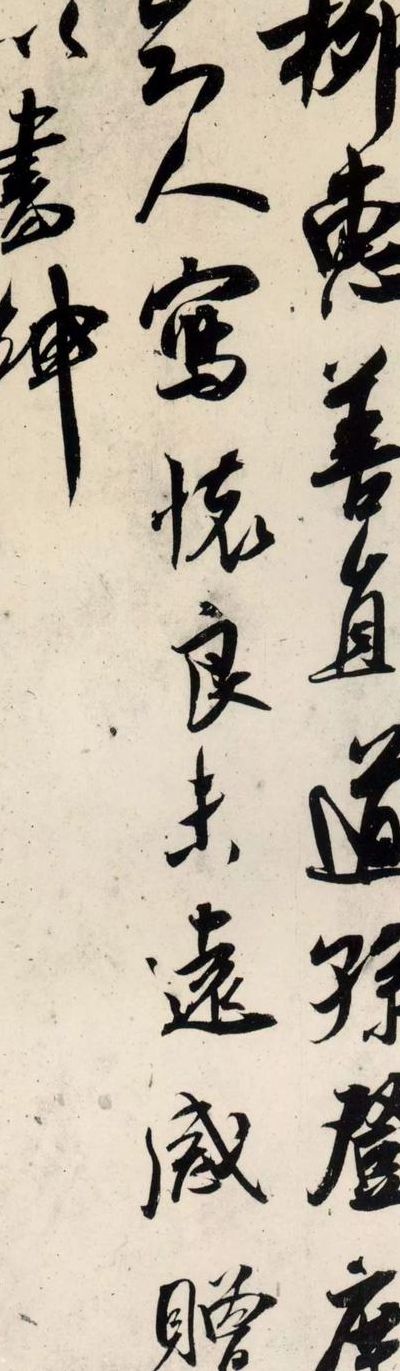 柳惠善直道孫登庶
人寫懷良未遠感贈
以書紳